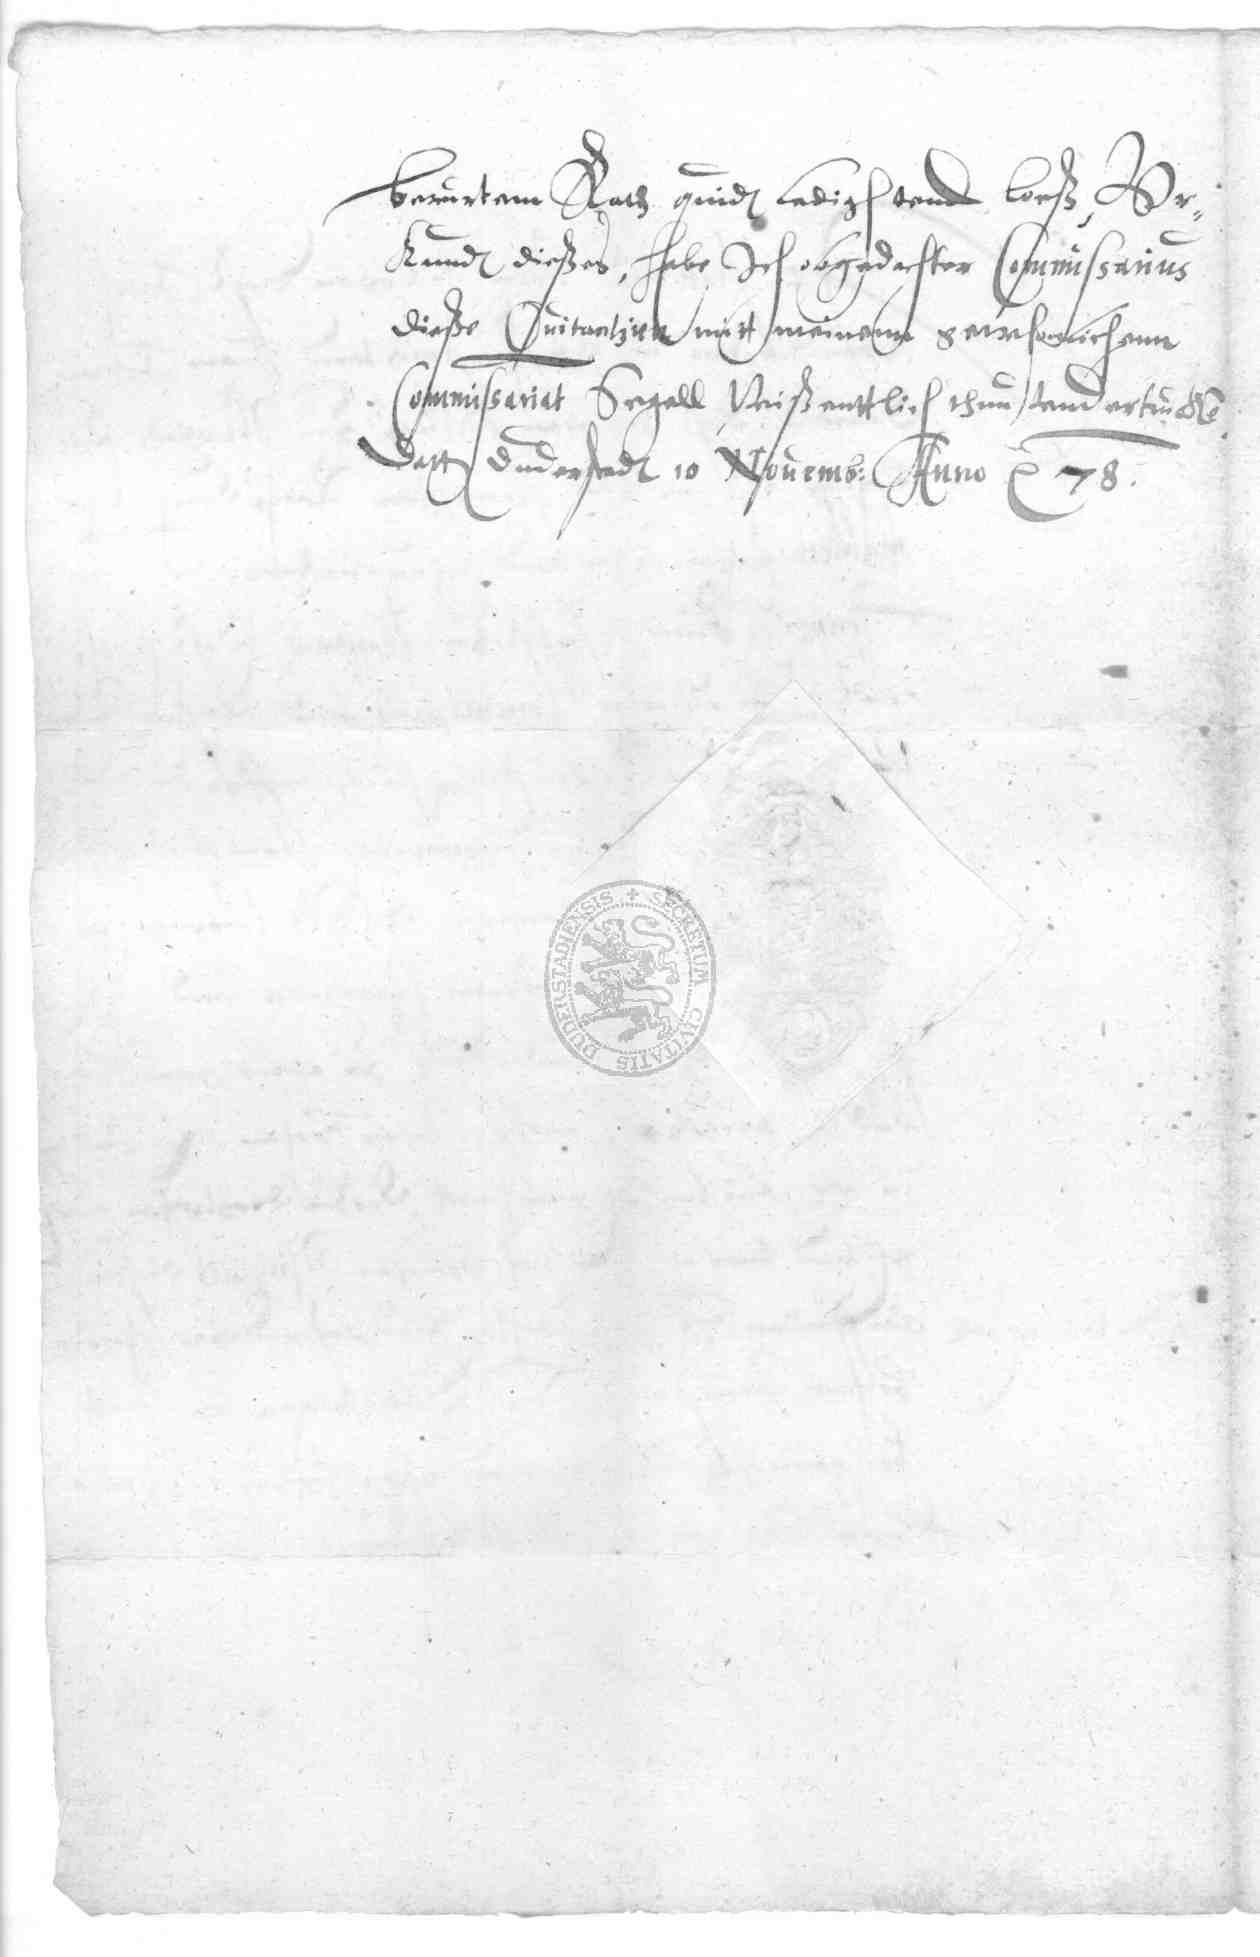 berurtem Rath quidt ledigh vnd loeß, Vr-
kundt dießes, habe Ich obgedachter Commissarius
dieße Quitantzien mitt meinem gewohnlichenn
Commissariat Segell Wißenttlich thun vnd
Datt Duderstadt 10 Nouemb: Anno 78.
SECRETUM CIVITATIS DUDERSTADIENSIS